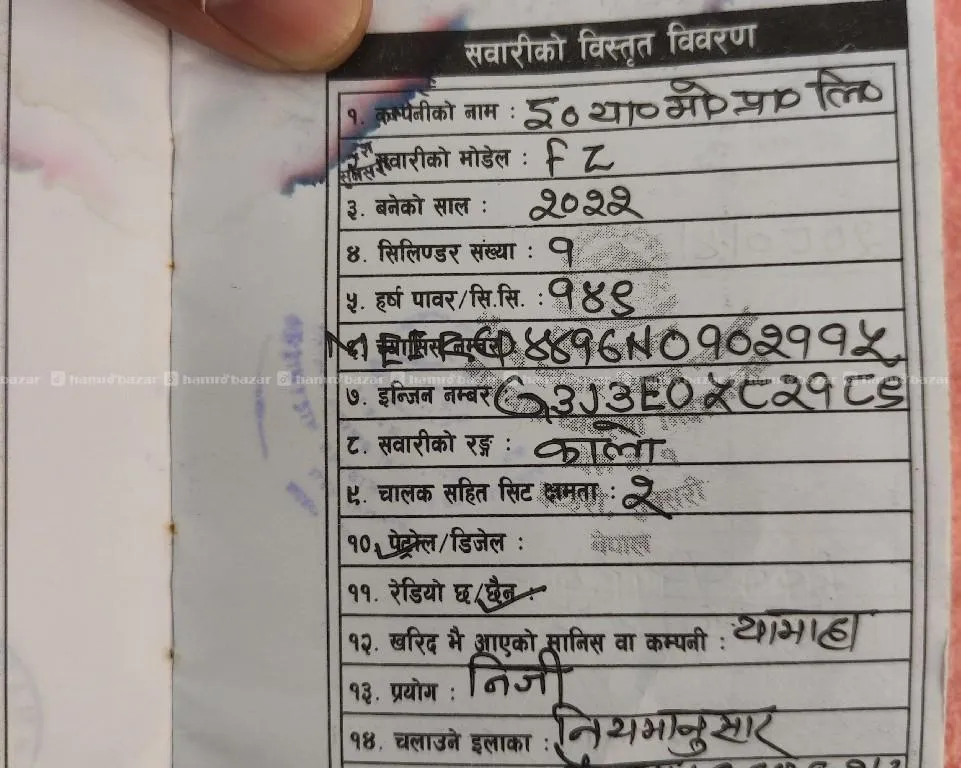 सवारीको विस्तृत विवरण
१. कम्पनीको नाम : इ० या० मो० प्रा० लि०
२. सवारीको मोडेल : FZ
३. बनेको साल : २०२२
४. सिलिण्डर संख्या : १
५. हर्ष पावर/सि.सि. : १४९
६. च्यासिस नम्बर
७. इन्जिन नम्बर G3J3E0५८२१८६
८. सवारीको रङ्ग : कालो
९. चालक सहित सिट क्षमता : २
१०. पेट्रोल/डिजेल :
नेपाल
११. रेडियो छ/छैन :
१२. खरिद भै आएको मानिस वा कम्पनी : यामाहा
१३. प्रयोग : निजी
१४. चलाउने इलाका : नियमानुसार
hamrobazar hamrobazar hamrobazar hamrobazar hamrobazar hamrobazar hamrobazar